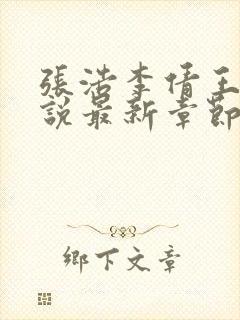 張浩李倩王
說最新章節
鄉下文章